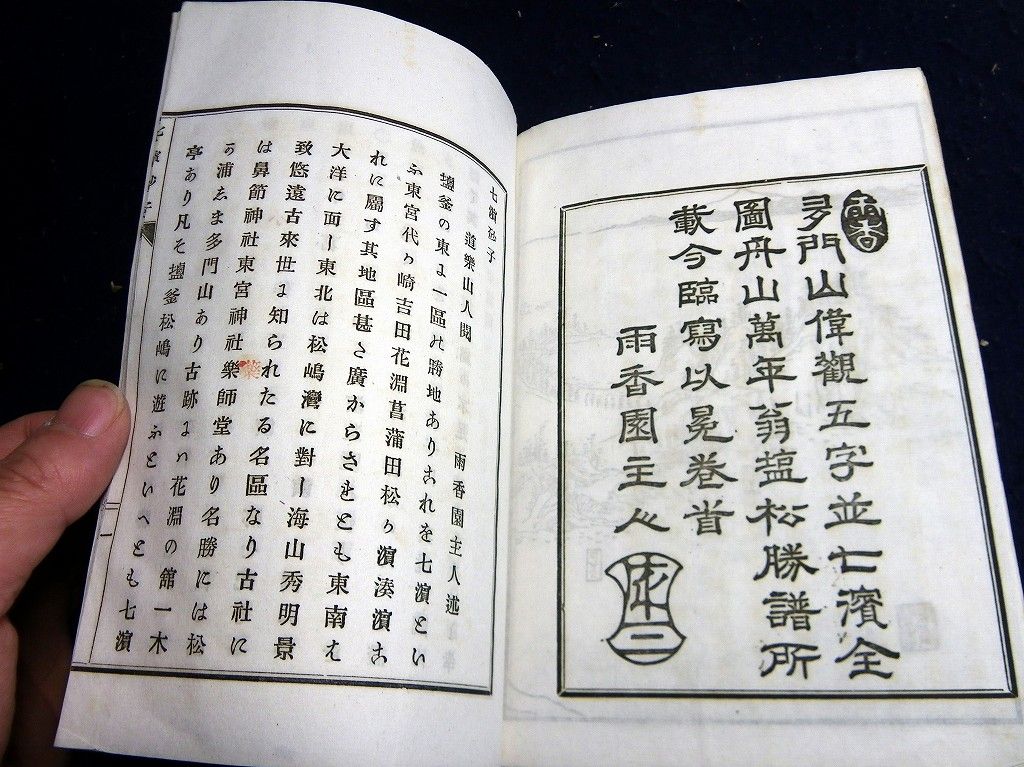 雨香
多門山偉觀五字並七濱全
圖舟山萬年翁塩松勝譜所
載今臨寫以冕卷首
雨香園主人
七濱砂子
道樂山人閲
雨香園主人述
鹽釜の東に一區の勝地ありこれを七濱とい
ふ東宮代ヶ崎吉田花淵菖蒲田松ヶ濱湊濱こ
れに屬す其地區甚さ廣からざれとも東南は
大洋に面し東北は松嶋灣に對し海山秀明景
致悠遠古來世に知られたる名區なり古社に
は鼻節神社東宮神社樂師堂あり名勝には松
か浦しま多門山あり古跡には花淵の舘一木
亭あり凡そ鹽釜松嶋に遊ふといへとも七濱
藥
一